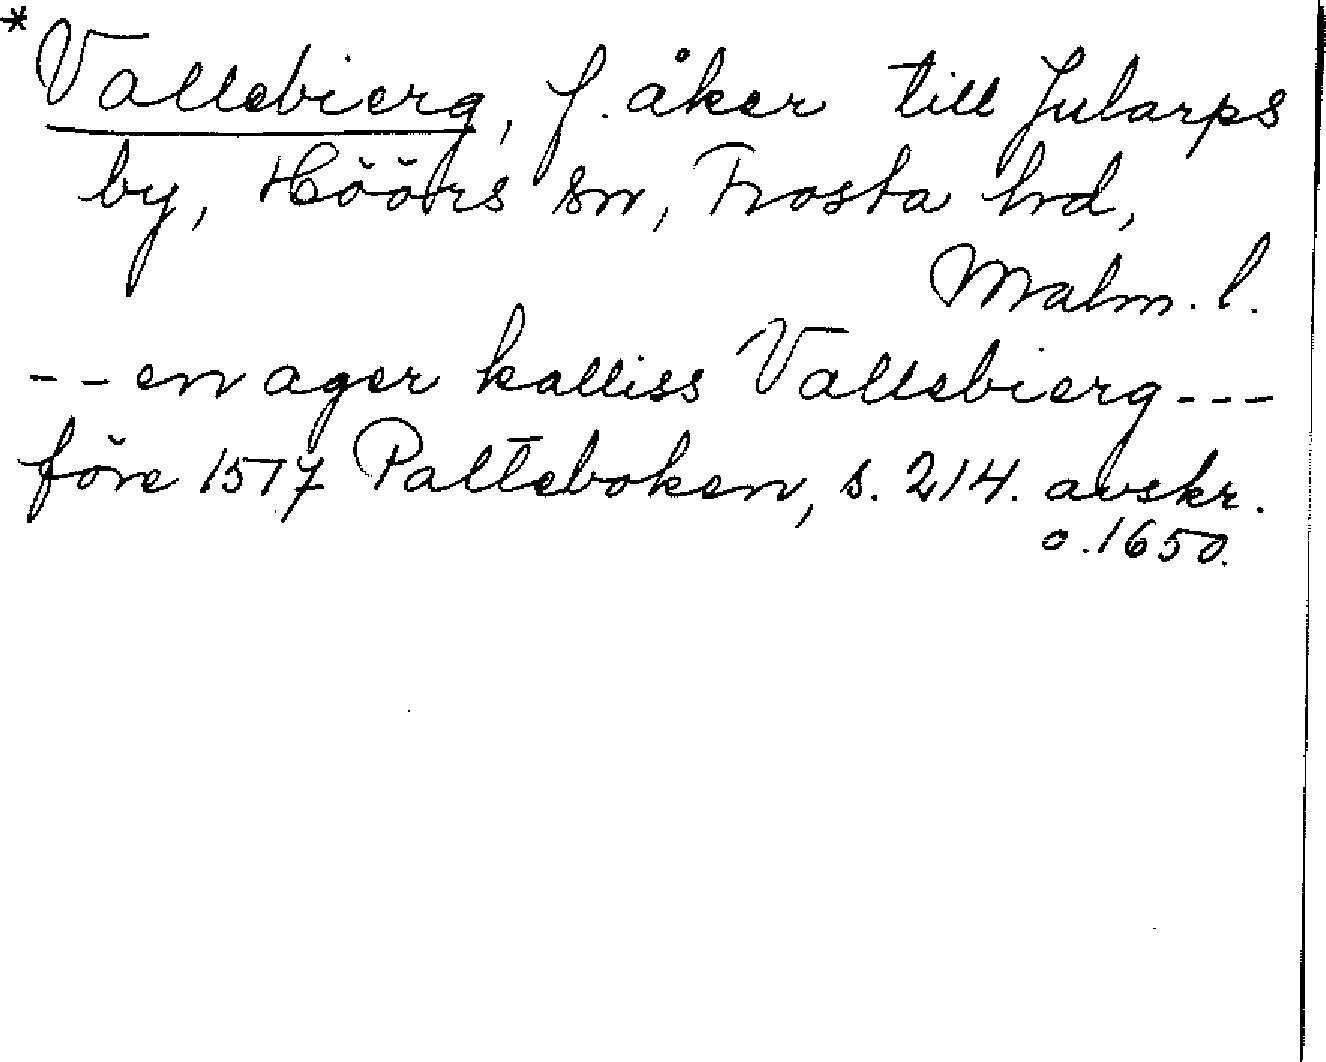 *Vallebierg, f. åker till Jularps
by, Höörs sn, Frosta hrd,
Malm. l.
-- en ager kalliss Vallebierg ---
före 1517 Palteboken, s. 214. avskr.
o. 1650.